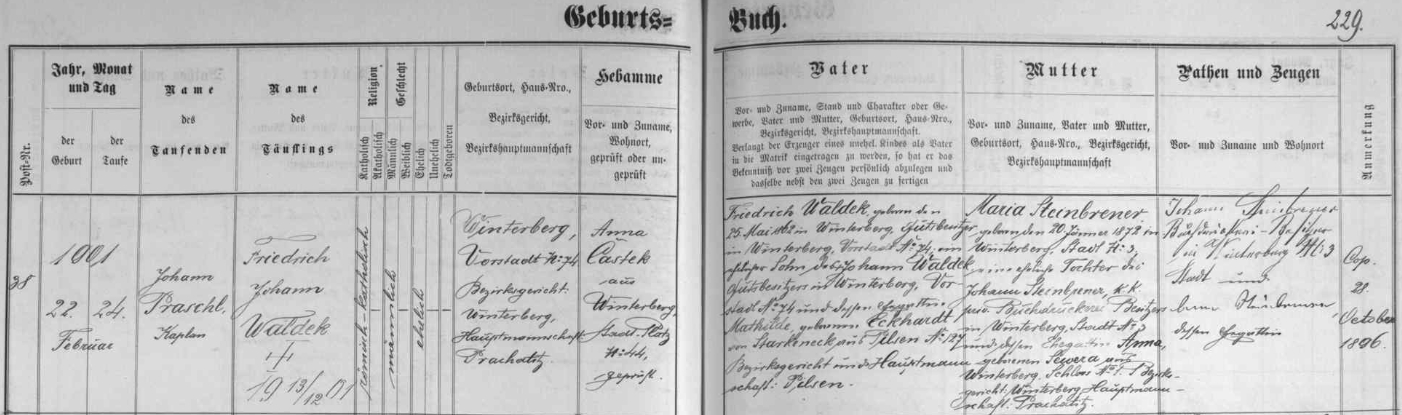 Geburts=
Buch.
229.
Post-Nr.
Jahr, Monat
und Tag
der
Geburt
der
Taufe
Name
des
Taufenden
Name
des
Täuflings
Religion
Katholisch
Akatholisch
Geschlecht
Männlich
Weiblich
Ehelich
Unehelich
Todtgeboren
Geburtsort, Haus-Nro.,
Bezirksgericht,
Bezirkshauptmannschaft
Hebamme
Vor- und Zuname,
Wohnort,
geprüft oder un-
geprüft
Vater
Vor- und Zuname, Stand und Charakter oder Ge-
werbe, Vater und Mutter, Geburtsort, Haus-Nro.,
Bezirksgericht, Bezirkshauptmannschaft.
Verlangt der Erzeuger eines unehel. Kindes als Vater
in die Matrik eingetragen zu werden, so hat er das
Bekenntniß vor zwei Zeugen persönlich abzulegen und
dasselbe nebst den zwei Zeugen zu fertigen
Mutter
Vor- und Zuname, Vater und Mutter,
Geburtsort, Haus-Nro., Bezirksgericht,
Bezirkshauptmannschaft
Pathen und Zeugen
Vor- und Zuname und Wohnort
Anmerkung
38
1901
22. 24.
Februar
Johann
Praschl,
Kaplan
Friedrich
Johann
Waldek
19 13/12 01
römisch-katholisch
männlich
ehelich
Winterberg,
Vorstadt No: 74
Bezirksgericht:
Winterberg,
Hauptmannschaft
Prachatitz.
Anna
Částek
aus
Winterberg,
Stadt Platz
No: 44,
geprüft.
Friedrich Waldek, geboren den
25. Mai 1862 in Winterberg, Gutsbesitzer
in Winterberg, Vorstadt No: 74, ein
ehelicher Sohn des Johann Waldek
Gutsbesitzers in Winterberg, Vor
stadt No: 74 und dessen Ehegattin
Mathilde, geborenen Eckhardt
von Starkeneck aus Pilsen No: 127
Bezirksgericht und Hauptmann
schaft: Pilsen.
Maria Steinbrener
geboren den 20. Jänner 1872 in
Winterberg, Stadt No: 3,
eine eheliche Tochter des
Johann Steinbrener, k. k.
priv. Buchdruckerei Besitzers
in Winterberg, Stadt No: 3
und dessen Ehegattin Anna,
geborenen Sewera aus
Winterberg, Schloß No: 1. Bezirks-
gericht: Winterberg, Hauptmann-
schaft: Prachatitz.
Johann Steinbrener
Buchdruckerei-Besitzer
in Winterberg No: 3
Stadt und
dessen Ehegattin
Cop.
28.
October
1896.